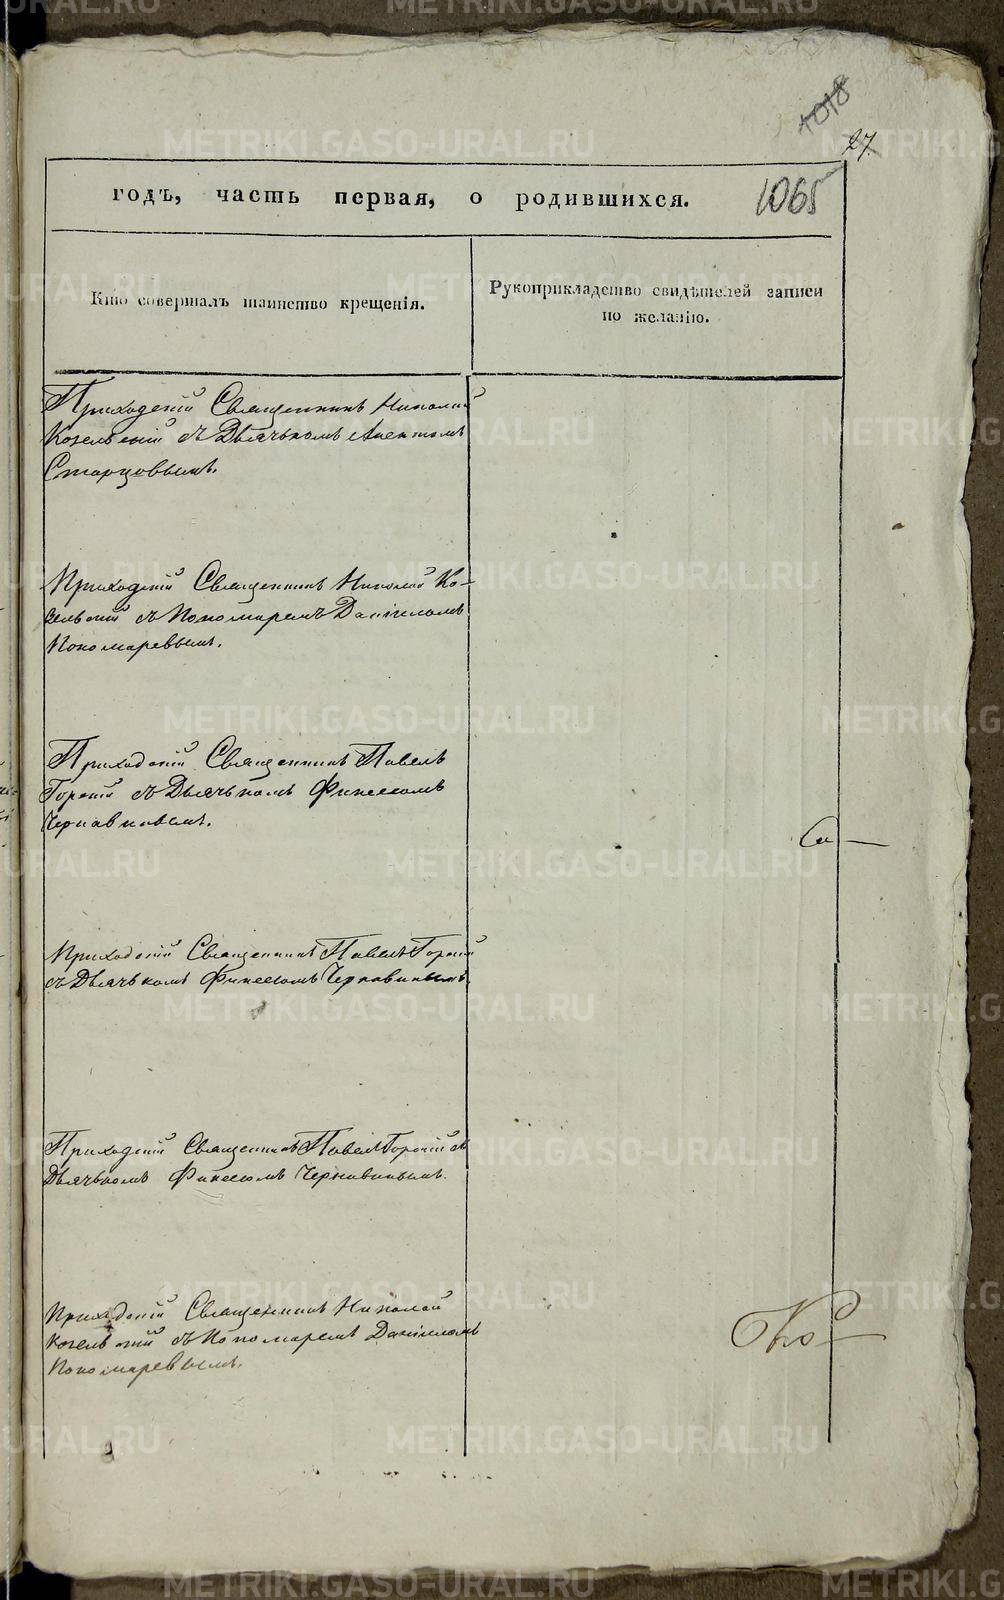 1018
27.
годъ, часть первая, о родившихся.
1065
Кто совершалъ таинство крещенія.
Рукоприкладство свидѣтелей записи
по желанію.
Приходскій Священникъ Николай
Козельскій съ Дьячькомъ
Старцовымъ.
Приходскій Священникъ Николай Ко-
зельскій съ Пономаремъ Даніиломъ
Пономаревымъ.
Приходскій Священникъ Павелъ
Горскій съ Дьячькомъ Финеесомъ
Чернавинымъ.
Приходскій Священникъ Павелъ Горскій
съ Дьячькомъ Финеесомъ Чернавинымъ.
Приходскій Священникъ Павелъ Горскій съ
Дьячькомъ Финеесомъ Чернавинымъ.
Приходскій Священникъ Николай
Козельскій съ Пономаремъ Даніиломъ
Пономаревымъ.
METRIKI.GASO-URAL.RU